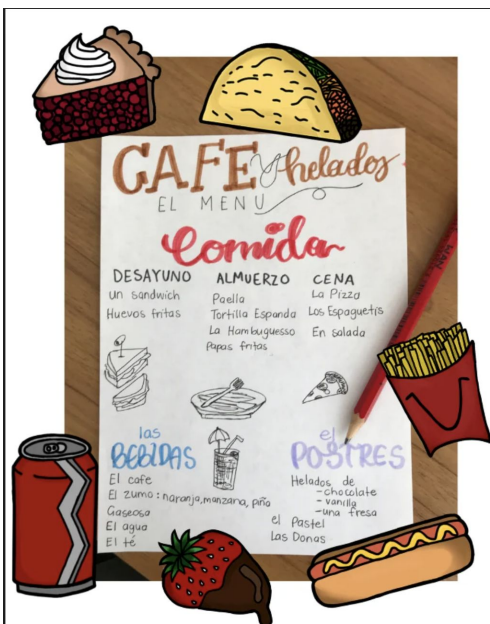 CAFE y helados
EL MENU
Comida
DESAYUNO
un sandwich
Huevos fritas
ALMUERZO
Paella
Tortilla Espanda
La Hambuguesso
Papas fritas
CENA
La Pizza
Los Espaguetis
En salada
las
BEBIDAS
El cafe
El zumo: naranja, manzana, piño
Gaseosa
El agua
El té
el
POSTRES
Helados de
-chocolate
-vanilla
-una fresa
el Pastel
Las Donas